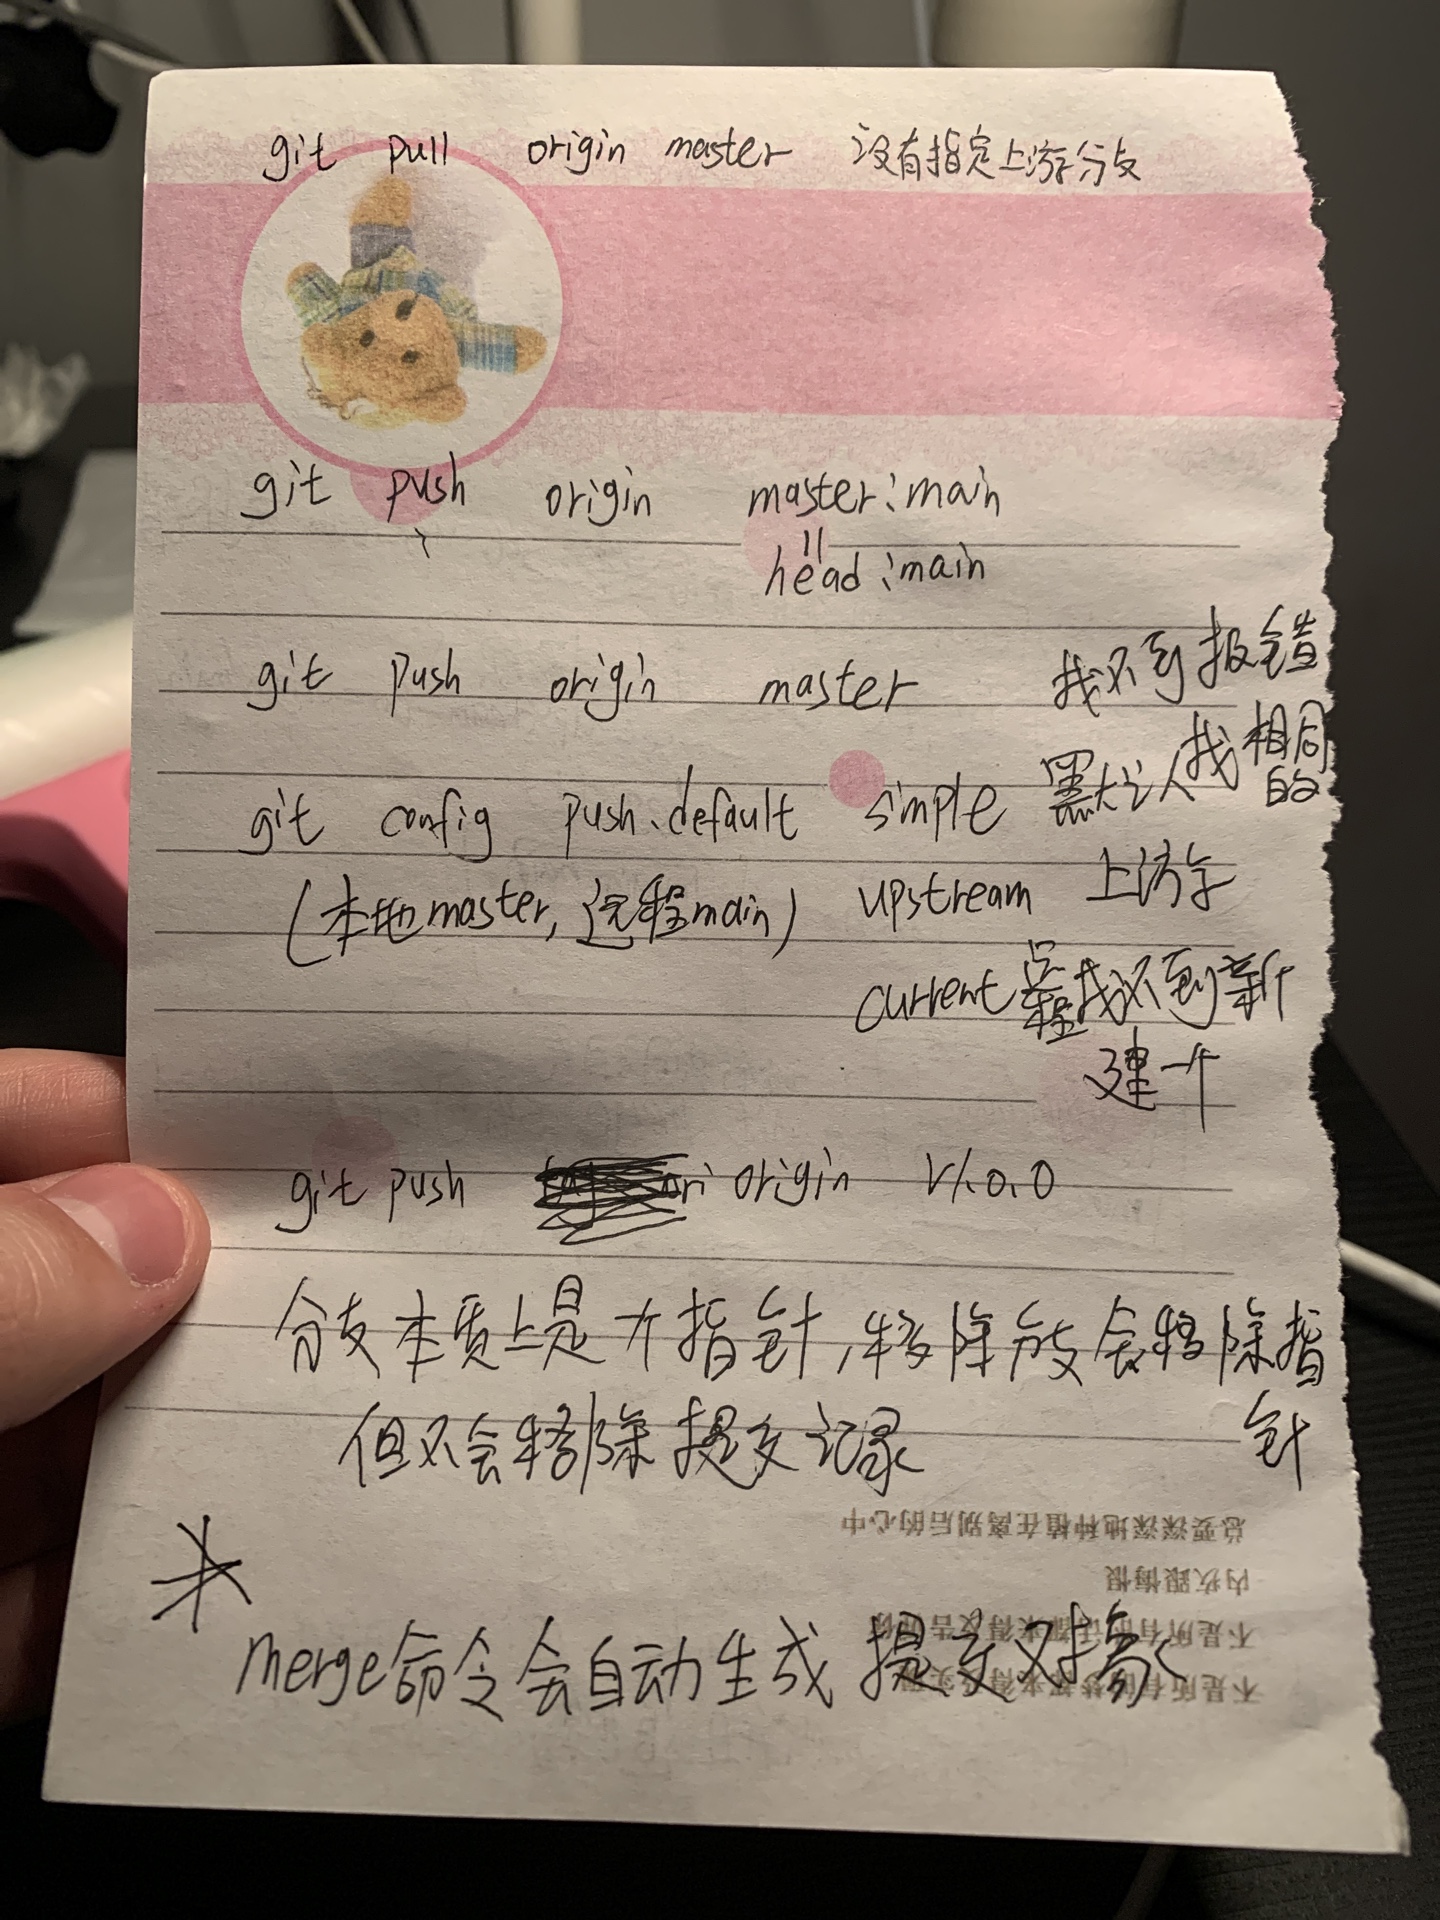 git pull origin master 没有指定上游分支
git push origin master:main
head:main
git push origin master 找不到报错
git config push.default simple 默认找相同的
(本地master, 远程main) upstream 上游
current 远程找不到新
建一个
git push origin v1.0.0
分支本质上是个指针,移除分支会移除指
针
但不会移除提交记录
merge命令会自动生成提交对象
总要深深地种植在离别后的心中
内疚跟悔恨
不是所有的话都来得及告诉你
不是所有的梦都来得及实现